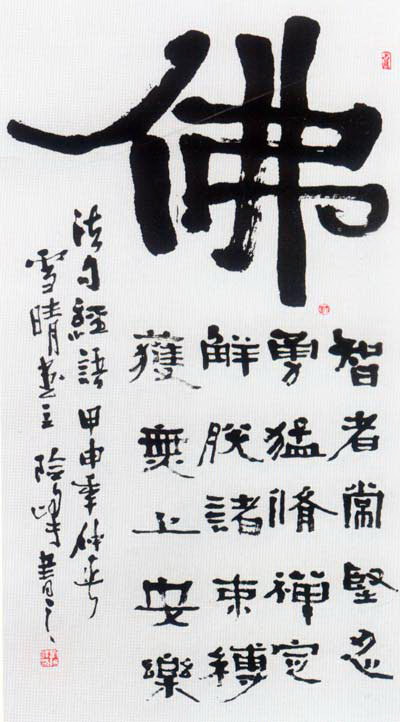 佛
智者常堅忍
勇猛脩禪定
解脫諸束縛
獲無上安樂
法句經語甲申年仲春
雪晴主險峰書之